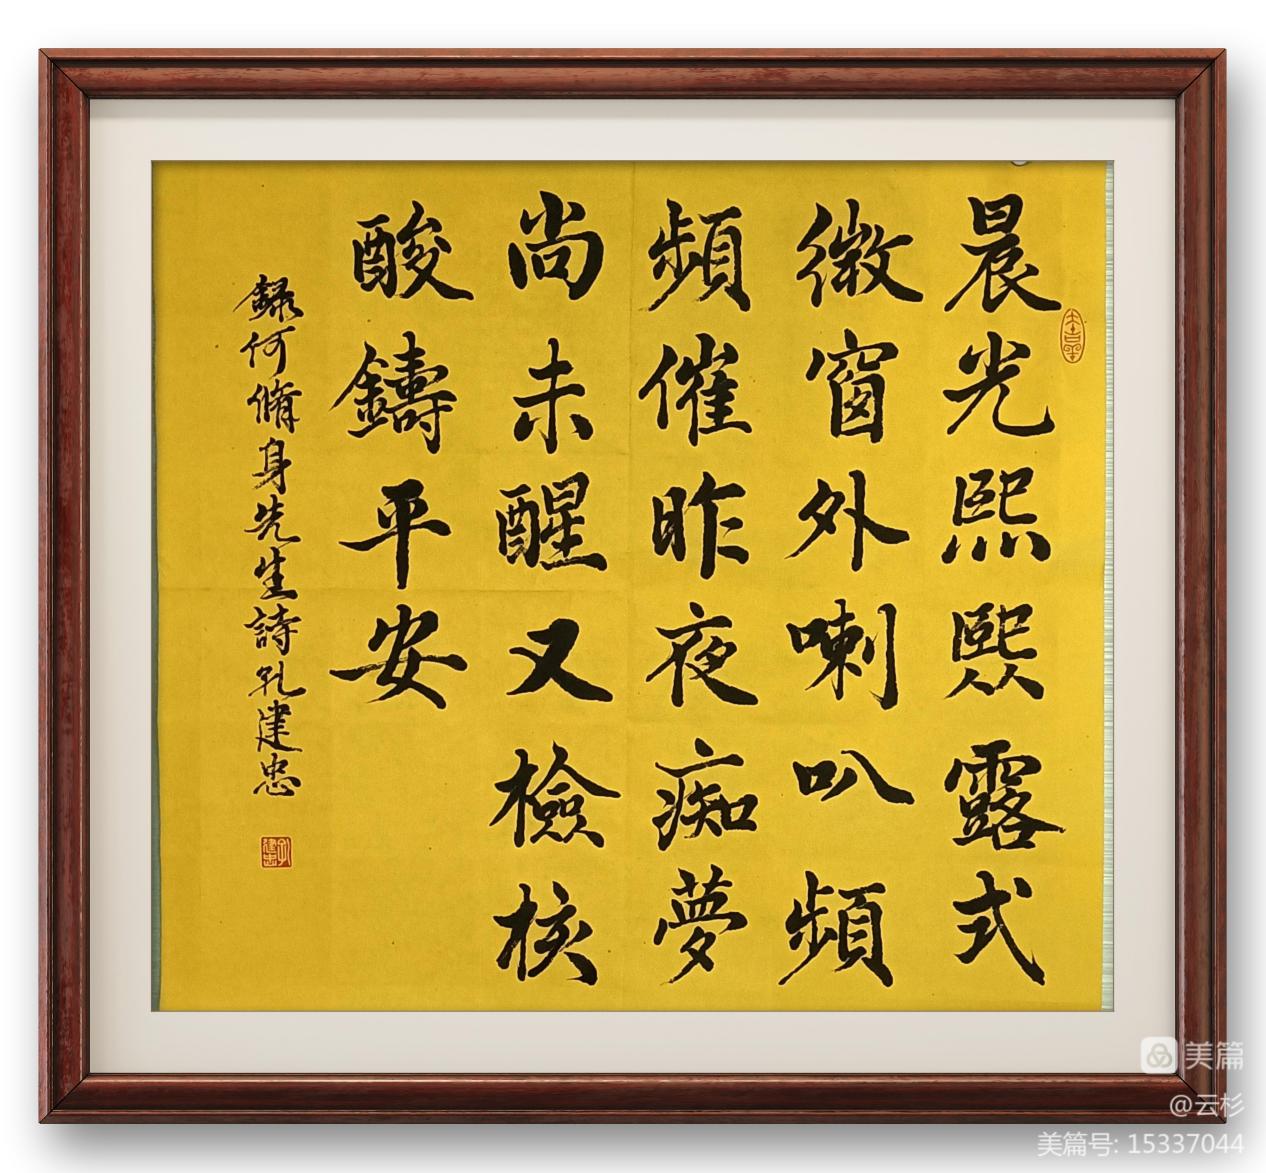 晨光熙熙露式
微窗外喇叭頻
頻催昨夜痴夢
尚未醒又檢核
酸鑄平安
錄何脩身先生詩孔建忠
孔建忠
美篇
@云杉
美篇号: 15337044